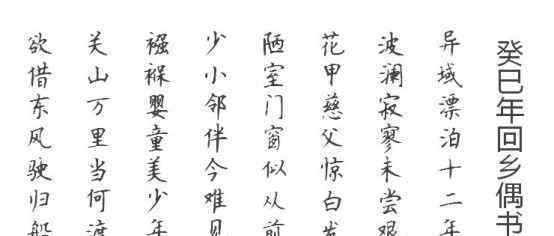 癸巳年回乡偶书
异域漂泊十二年
波澜寂寥未尝艰
花甲慈父惊白发
陋室门窗似从前
少小邻伴今难见
襁褓婴童美少年
关山万里当何渡
欲借东风驶归船